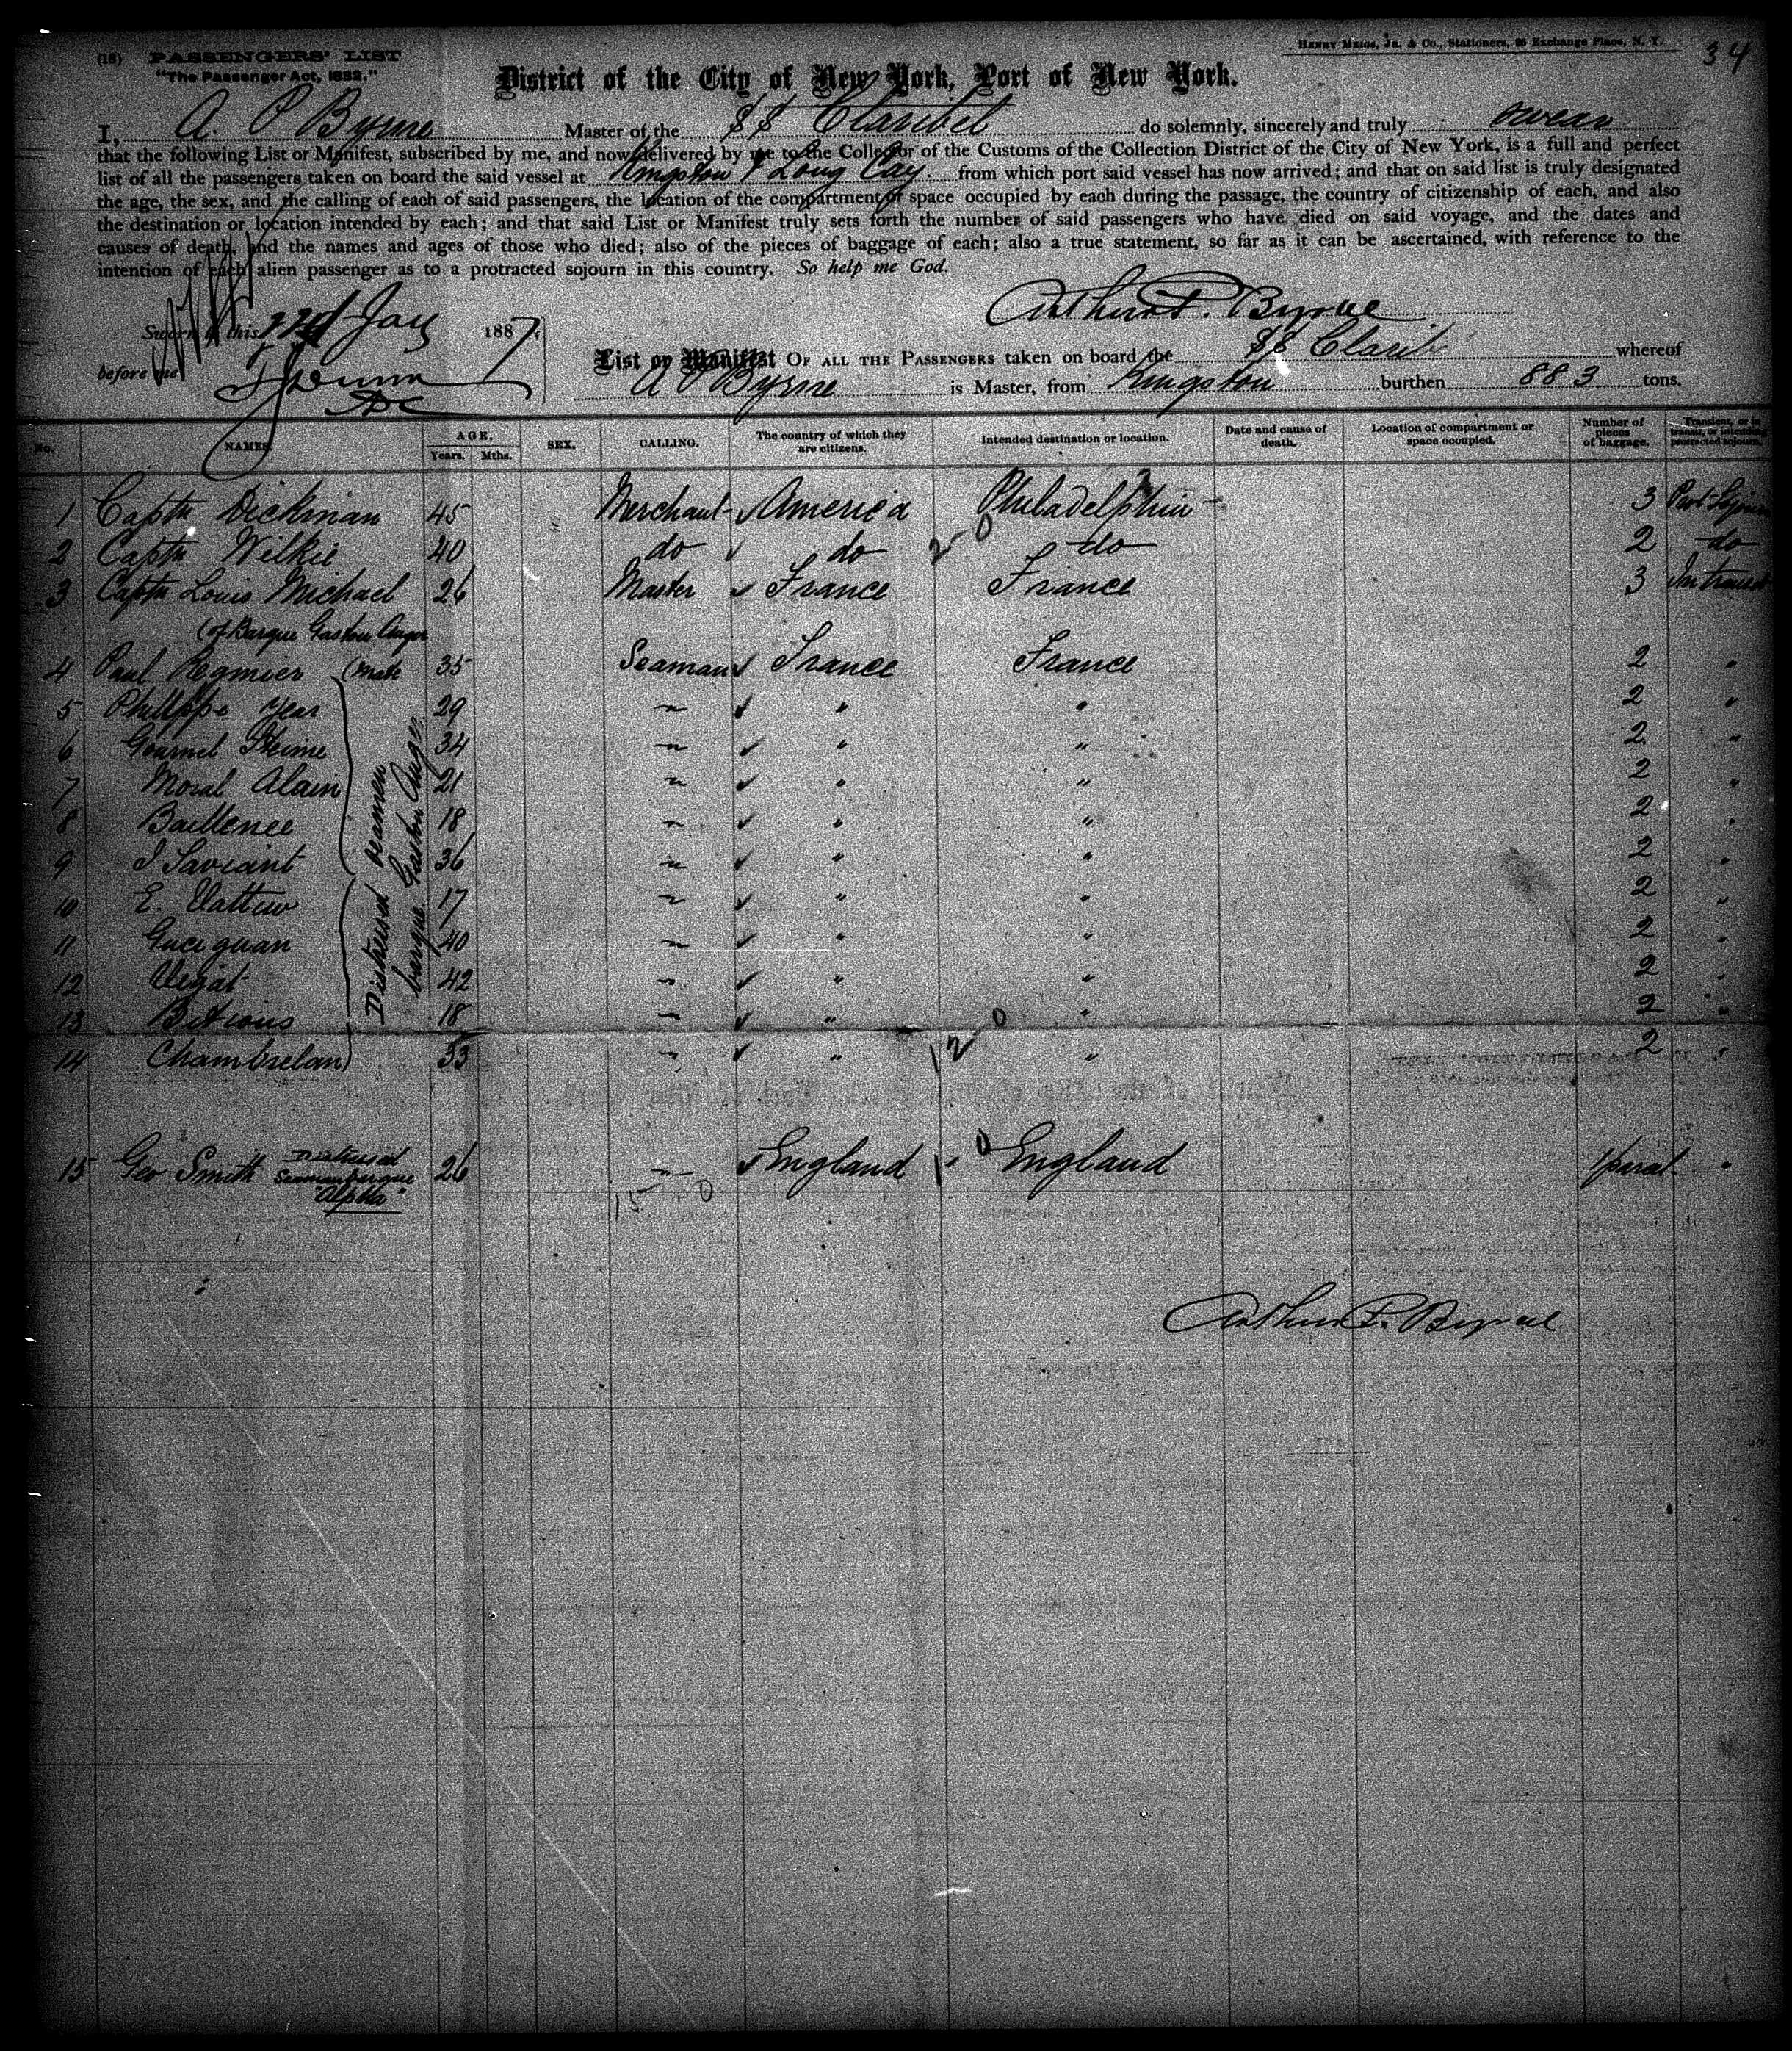 34
(18) PASSENGERS' LIST
"The Passenger Act, 1882."
HENRY MEIGS, JR. & CO., Stationers, 95 Exchange Place, N. Y.
District of the City of New York, Port of New York.
I, A. P Byrne Master of the SS Claribel do solemnly, sincerely and truly swear
that the following List or Manifest, subscribed by me, and now delivered by me to the Collector of the Customs of the Collection District of the City of New York, is a full and perfect
list of all the passengers taken on board the said vessel at Kingston & Long Cay from which port said vessel has now arrived; and that on said list is truly designated
the age, the sex, and the calling of each of said passengers, the location of the compartment or space occupied by each during the passage, the country of citizenship of each, and also
the destination or location intended by each; and that said List or Manifest truly sets forth the number of said passengers who have died on said voyage, and the dates and
causes of death, and the names and ages of those who died; also of the pieces of baggage of each; also a true statement, so far as it can be ascertained, with reference to the
intention of each alien passenger as to a protracted sojourn in this country. So help me God.
Arthur P. Byrne
Sworn to this 22d Jany 1887.
before me
List or Manifest OF ALL THE PASSENGERS taken on board the SS Clarib whereof
A P Byrne is Master, from Kingston burthen 883 tons.
No. NAMES. AGE. Years. Mths. SEX. CALLING. The country of which they are citizens. Intended destination or location. Date and cause of death. Location of compartment or space occupied. Number of pieces of baggage. Transient, or in transit, or intending protracted sojourn.
1 Captn Dickman 45 Merchant America Philadelphia 3
2 Captn Wilkie 40 do do 2 0 do 2 do
3 Captn Louis Michael 26 Master France France 3 In transit
(of Barque Gaston Auger
4 Paul Regnier (Mate 35 Seaman France France 2 "
5 Phillippe Year 29 " " " 2 "
6 Gournel 34 " " " 2 "
7 Moral Alain 21 " " " 2 "
8 Baillenee 18 " " " 2 "
9 J Saviant 36 " " " 2 "
10 E. 17 " " " 2 "
11 40 " " " 2 "
12 42 " " " 2 "
13 18 " " " 2 "
14 Chambrelan 33 " " 12 0 " 2 "
Distressed seamen
barque Gaston Auger
15 Geo Smith Distressed Seaman barque "Alpha" 26 " England 1 0 England 1 parcel "
15 0
Arthur P. Byrne